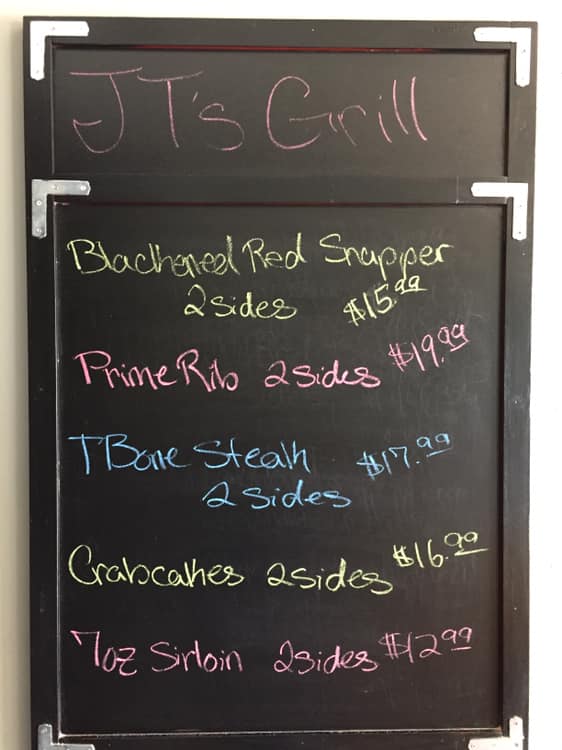 JT's Grill
Blackened Red Snapper
2 sides $15.99
Prime Rib 2 sides $19.99
T Bone Steak $17.99
2 sides
Crabcakes 2 sides $16.99
7oz Sirloin 2 sides $12.99